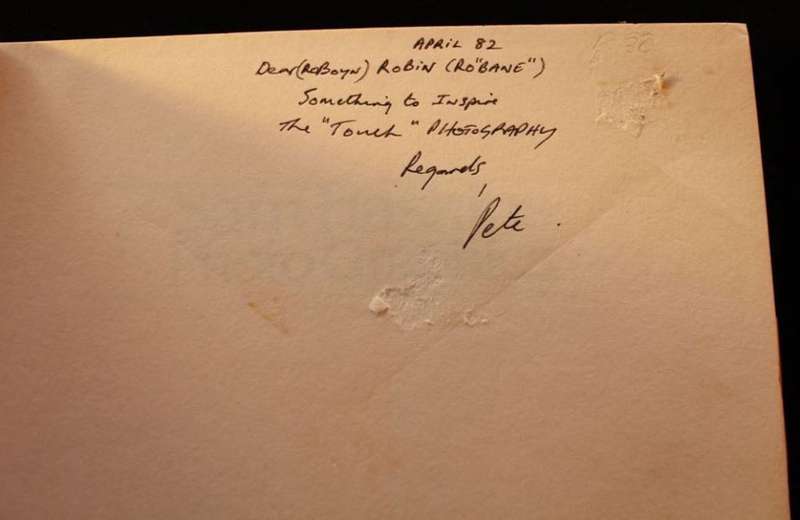 APRIL 82
Dear (RoBoyn) ROBIN (RO"BANE")
Something to Inspire
The "Touch" PHOTOGRAPHY
Regards,
Pete.